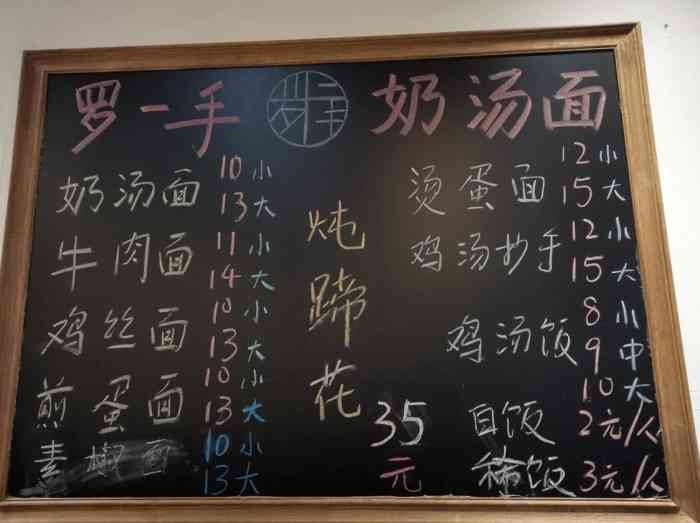 罗一手 奶汤面
奶汤面 10 小 13 大
牛肉面 11 小 14 大
鸡丝面 10 小 13 大
煎蛋面 10 小 13 大
素椒面 10 小 13 大
炖蹄花 35元
烫蛋面 12 小 15 大
鸡汤抄手 12 小 15 大
鸡汤饭 8 小 9 中 10 大
白饭 2元/人
稀饭 3元/人